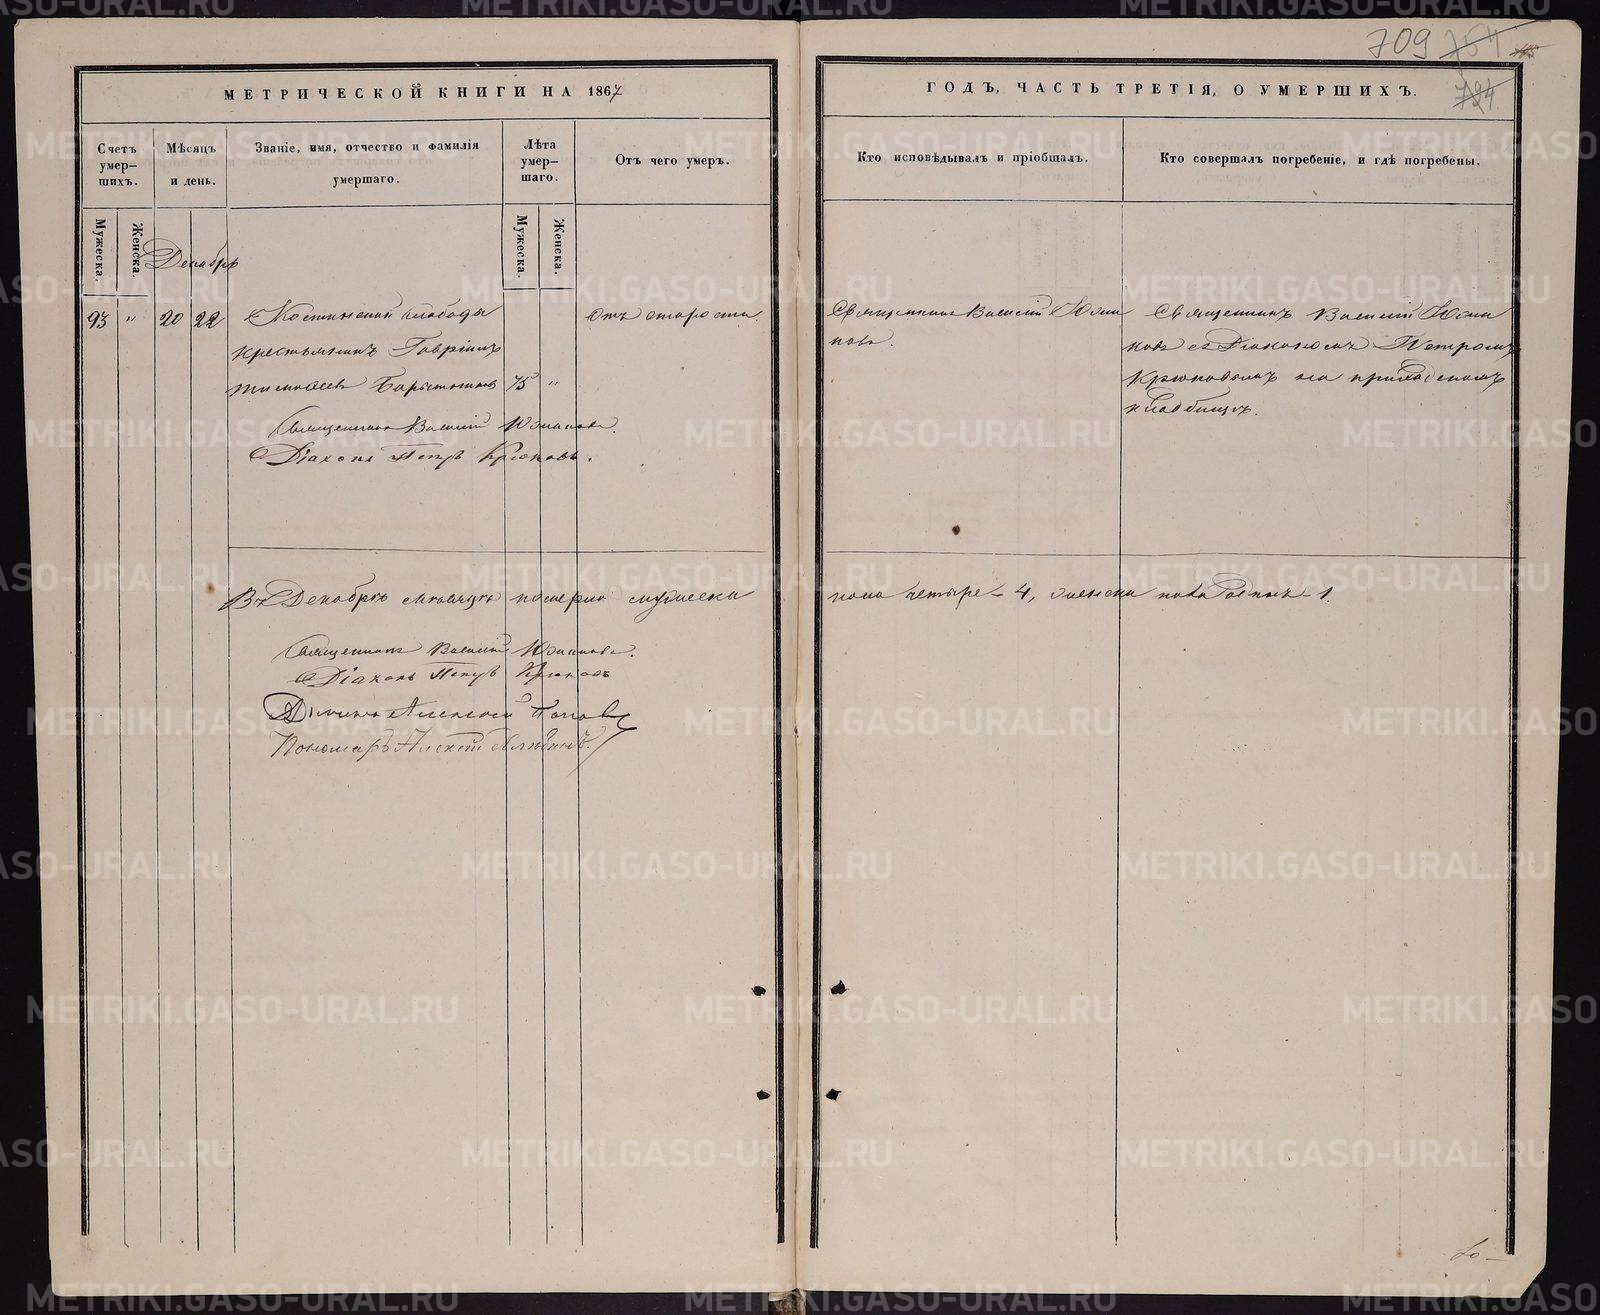 709 754
724
МЕТРИЧЕСКОЙ КНИГИ НА 1867
ГОДЪ, ЧАСТЬ ТРЕТІЯ, О УМЕРШИХЪ.
Счетъ умер-
шихъ.
Мѣсяцъ
и день.
Званіе, имя, отчество и фамилія
умершаго.
Лѣта
умер-
шаго.
Отъ чего умеръ.
Кто исповѣдывалъ и пріобщалъ.
Кто совершалъ погребеніе, и гдѣ погребены.
Мужеска.
Женска.
Мужеска.
Женска.
Декабрь
93 " 20 22 слободы
крестьянинъ Гавріилъ
75 "
Отъ старости.
Священникъ Василій
Священникъ Василій
съ Діакономъ Петромъ
Крюковымъ на приходскомъ
кладбищѣ.
Священникъ Василій
Діаконъ Петръ Крюковъ.
Въ Декабрѣ мѣсяцѣ померло мужеска
пола четыре - 4, женска пола - 1.
Священникъ Василій
Діаконъ Петръ Крюковъ
Алексѣй Поповъ
Пономарь Алексѣй
METRIKI.GASO-URAL.RU